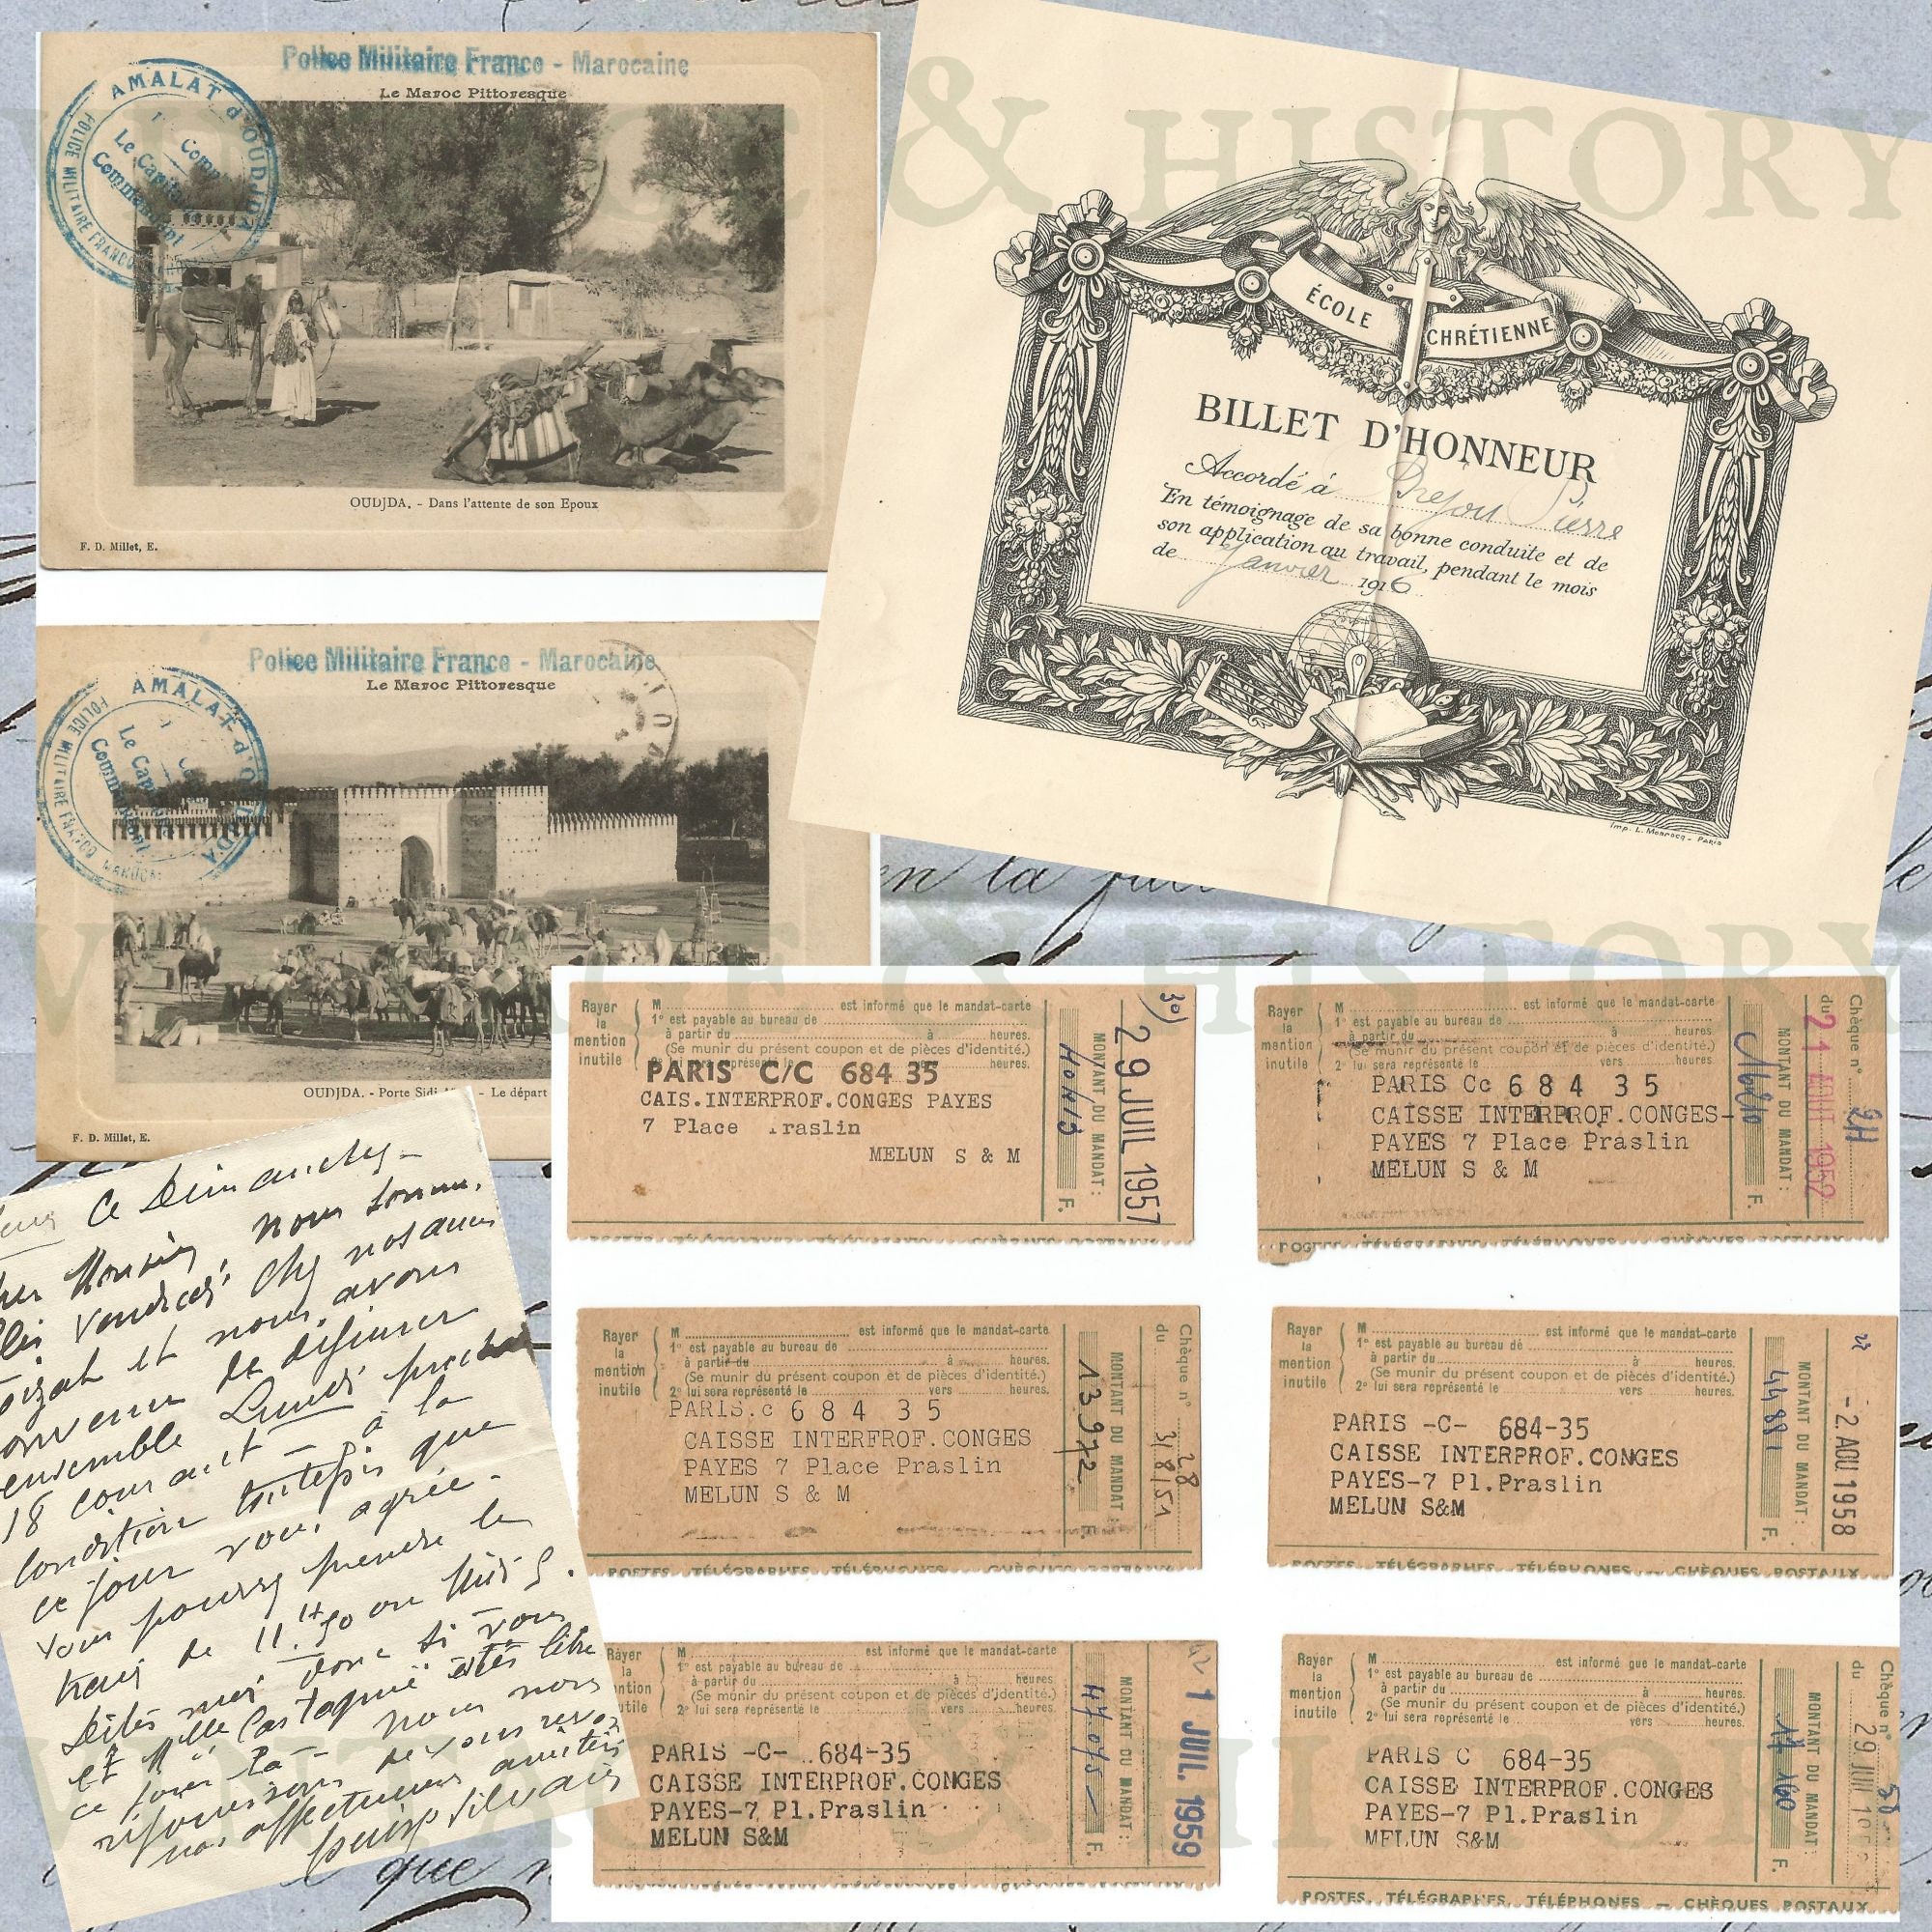 Police Militaire Franco - Marocaine
Le Maroc Pittoresque
AMALAT d'OUDJDA
POLICE MILITAIRE FRANCO
Le Capitaine
Commandant
OUDJDA. - Dans l'attente de son Epoux
F. D. Millet, E.
Police Militaire Franco - Marocaine
Le Maroc Pittoresque
AMALAT d'OUDJDA
POLICE MILITAIRE FRANCO MAROCA
Le Capitaine
Commandant
OUDJDA. - Porte Sidi - Le départ
F. D. Millet, E.
& HISTORY
ÉCOLE CHRÉTIENNE
BILLET D'HONNEUR
Accordé à Pierre
En témoignage de sa bonne conduite et de
son application au travail, pendant le mois
de Janvier 1916
Imp. L. Paris
en la
VINTAGE & HISTORY
ce Dimanche
Monsieur, nous sommes
Vendredi chez nos amis
et nous avons
convenu de déjeuner
ensemble Lundi prochain
18 courant - à la
condition toutefois que
ce jour vous agrée -
vous pourrez prendre le
train de 11H.50 ou Midi 5.
Dites moi donc si vous
et Mlle êtes libre
ce jour là - nous nous
réjouissons de vous revoir
nos affectueuses amitiés
que
Rayer la mention inutile
M est informé que le mandat-carte
1° est payable au bureau de
à partir du à heures.
(Se munir du présent coupon et de pièces d'identité.)
2° lui sera représenté le vers heures.
PARIS C/C 684 35
CAIS.INTERPROF.CONGES PAYES
7 Place raslin
MELUN S & M
MONTANT DU MANDAT :
F.
30)
29 JUIL 1957
Rayer la mention inutile
M est informé que le mandat-carte
1° est payable au bureau de
à partir du à heures
(Se munir du présent coupon et de pièces d'identité.)
2° lui sera représenté le vers heures.
PARIS Cc 6 8 4 3 5
CAISSE INTERPROF.CONGES-
PAYES 7 Place Praslin
MELUN S & M
MONTANT DU MANDAT :
F.
Chèque n°
du 21 AOUT 1952
POSTES, TÉLÉGRAPHES, TÉLÉPHONES — CHÈQUES POSTAUX
Rayer la mention inutile
M est informé que le mandat-carte
1° est payable au bureau de
à partir du à heures.
(Se munir du présent coupon et de pièces d'identité.)
2° lui sera représenté le vers heures.
PARIS.c 6 8 4 3 5
CAISSE INTERFROF.CONGES
PAYES 7 Place Praslin
MELUN S & M
13 972
MONTANT DU MANDAT :
F.
Chèque n° 28
du 3/8/51
POSTES, TÉLÉGRAPHES, TÉLÉPHONES — CHÈQUES POSTAUX
Rayer la mention inutile
M est informé que le mandat-carte
1° est payable au bureau de
à partir du à heures.
(Se munir du présent coupon et de pièces d'identité.)
2° lui sera représenté le vers heures.
PARIS -C- 684-35
CAISSE INTERPROF.CONGES
PAYES-7 Pl.Praslin
MELUN S&M
MONTANT DU MANDAT :
F.
-2 AOU 1958
POSTES, TÉLÉGRAPHES, TÉLÉPHONES — CHÈQUES POSTAUX
Rayer la mention inutile
M est informé que le mandat-carte
1° est payable au bureau de
à partir du à heures.
(Se munir du présent coupon et de pièces d'identité.)
2° lui sera représenté le vers heures.
PARIS -C- 684-35
CAISSE INTERPROF.CONGES
PAYES-7 Pl.Praslin
MELUN S&M
47.075 —
MONTANT DU MANDAT :
F.
1 JUIL. 1959
Rayer la mention inutile
M est informé que le mandat-carte
1° est payable au bureau de
à partir du à heures.
(Se munir du présent coupon et de pièces d'identité.)
2° lui sera représenté le vers heures.
PARIS C 684-35
CAISSE INTERPROF.CONGES
PAYES-7 Pl.Praslin
MELUN S&M
MONTANT DU MANDAT :
F.
Chèque n° 58
du 29 JUI
POSTES, TÉLÉGRAPHES, TÉLÉPHONES — CHÈQUES POSTAUX
VINTAGE & HISTORY